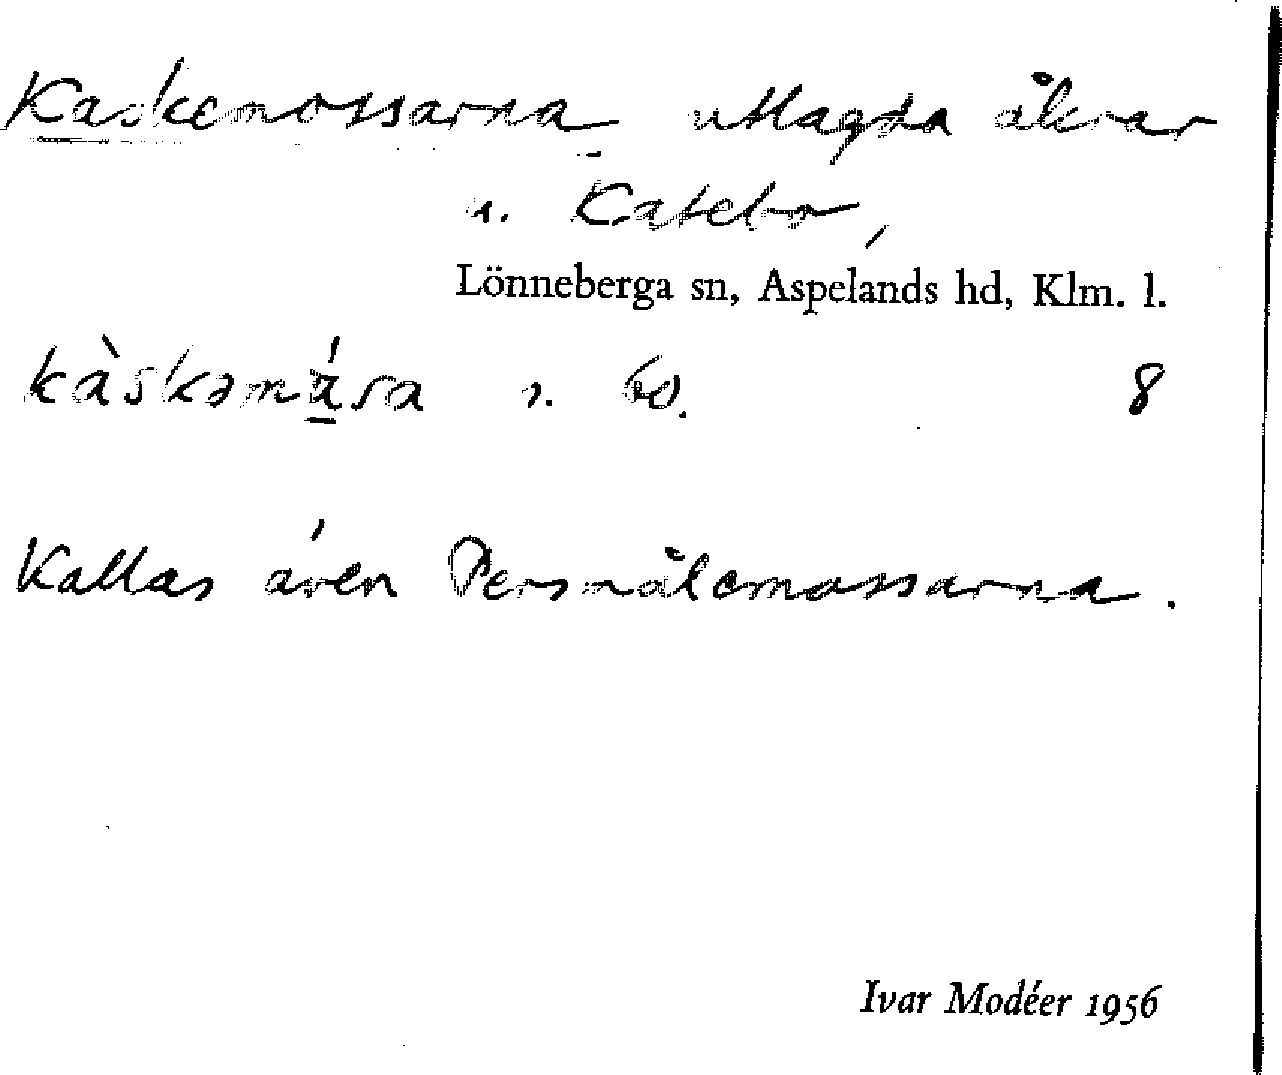 Kaskemossarna utlagda åkrar
u. Katebo,
Lönneberga sn, Aspelands hd, Klm. l.
kàskəmá̱sa 8
Kallas även Persmålemossarna.
Ivar Modéer 1956